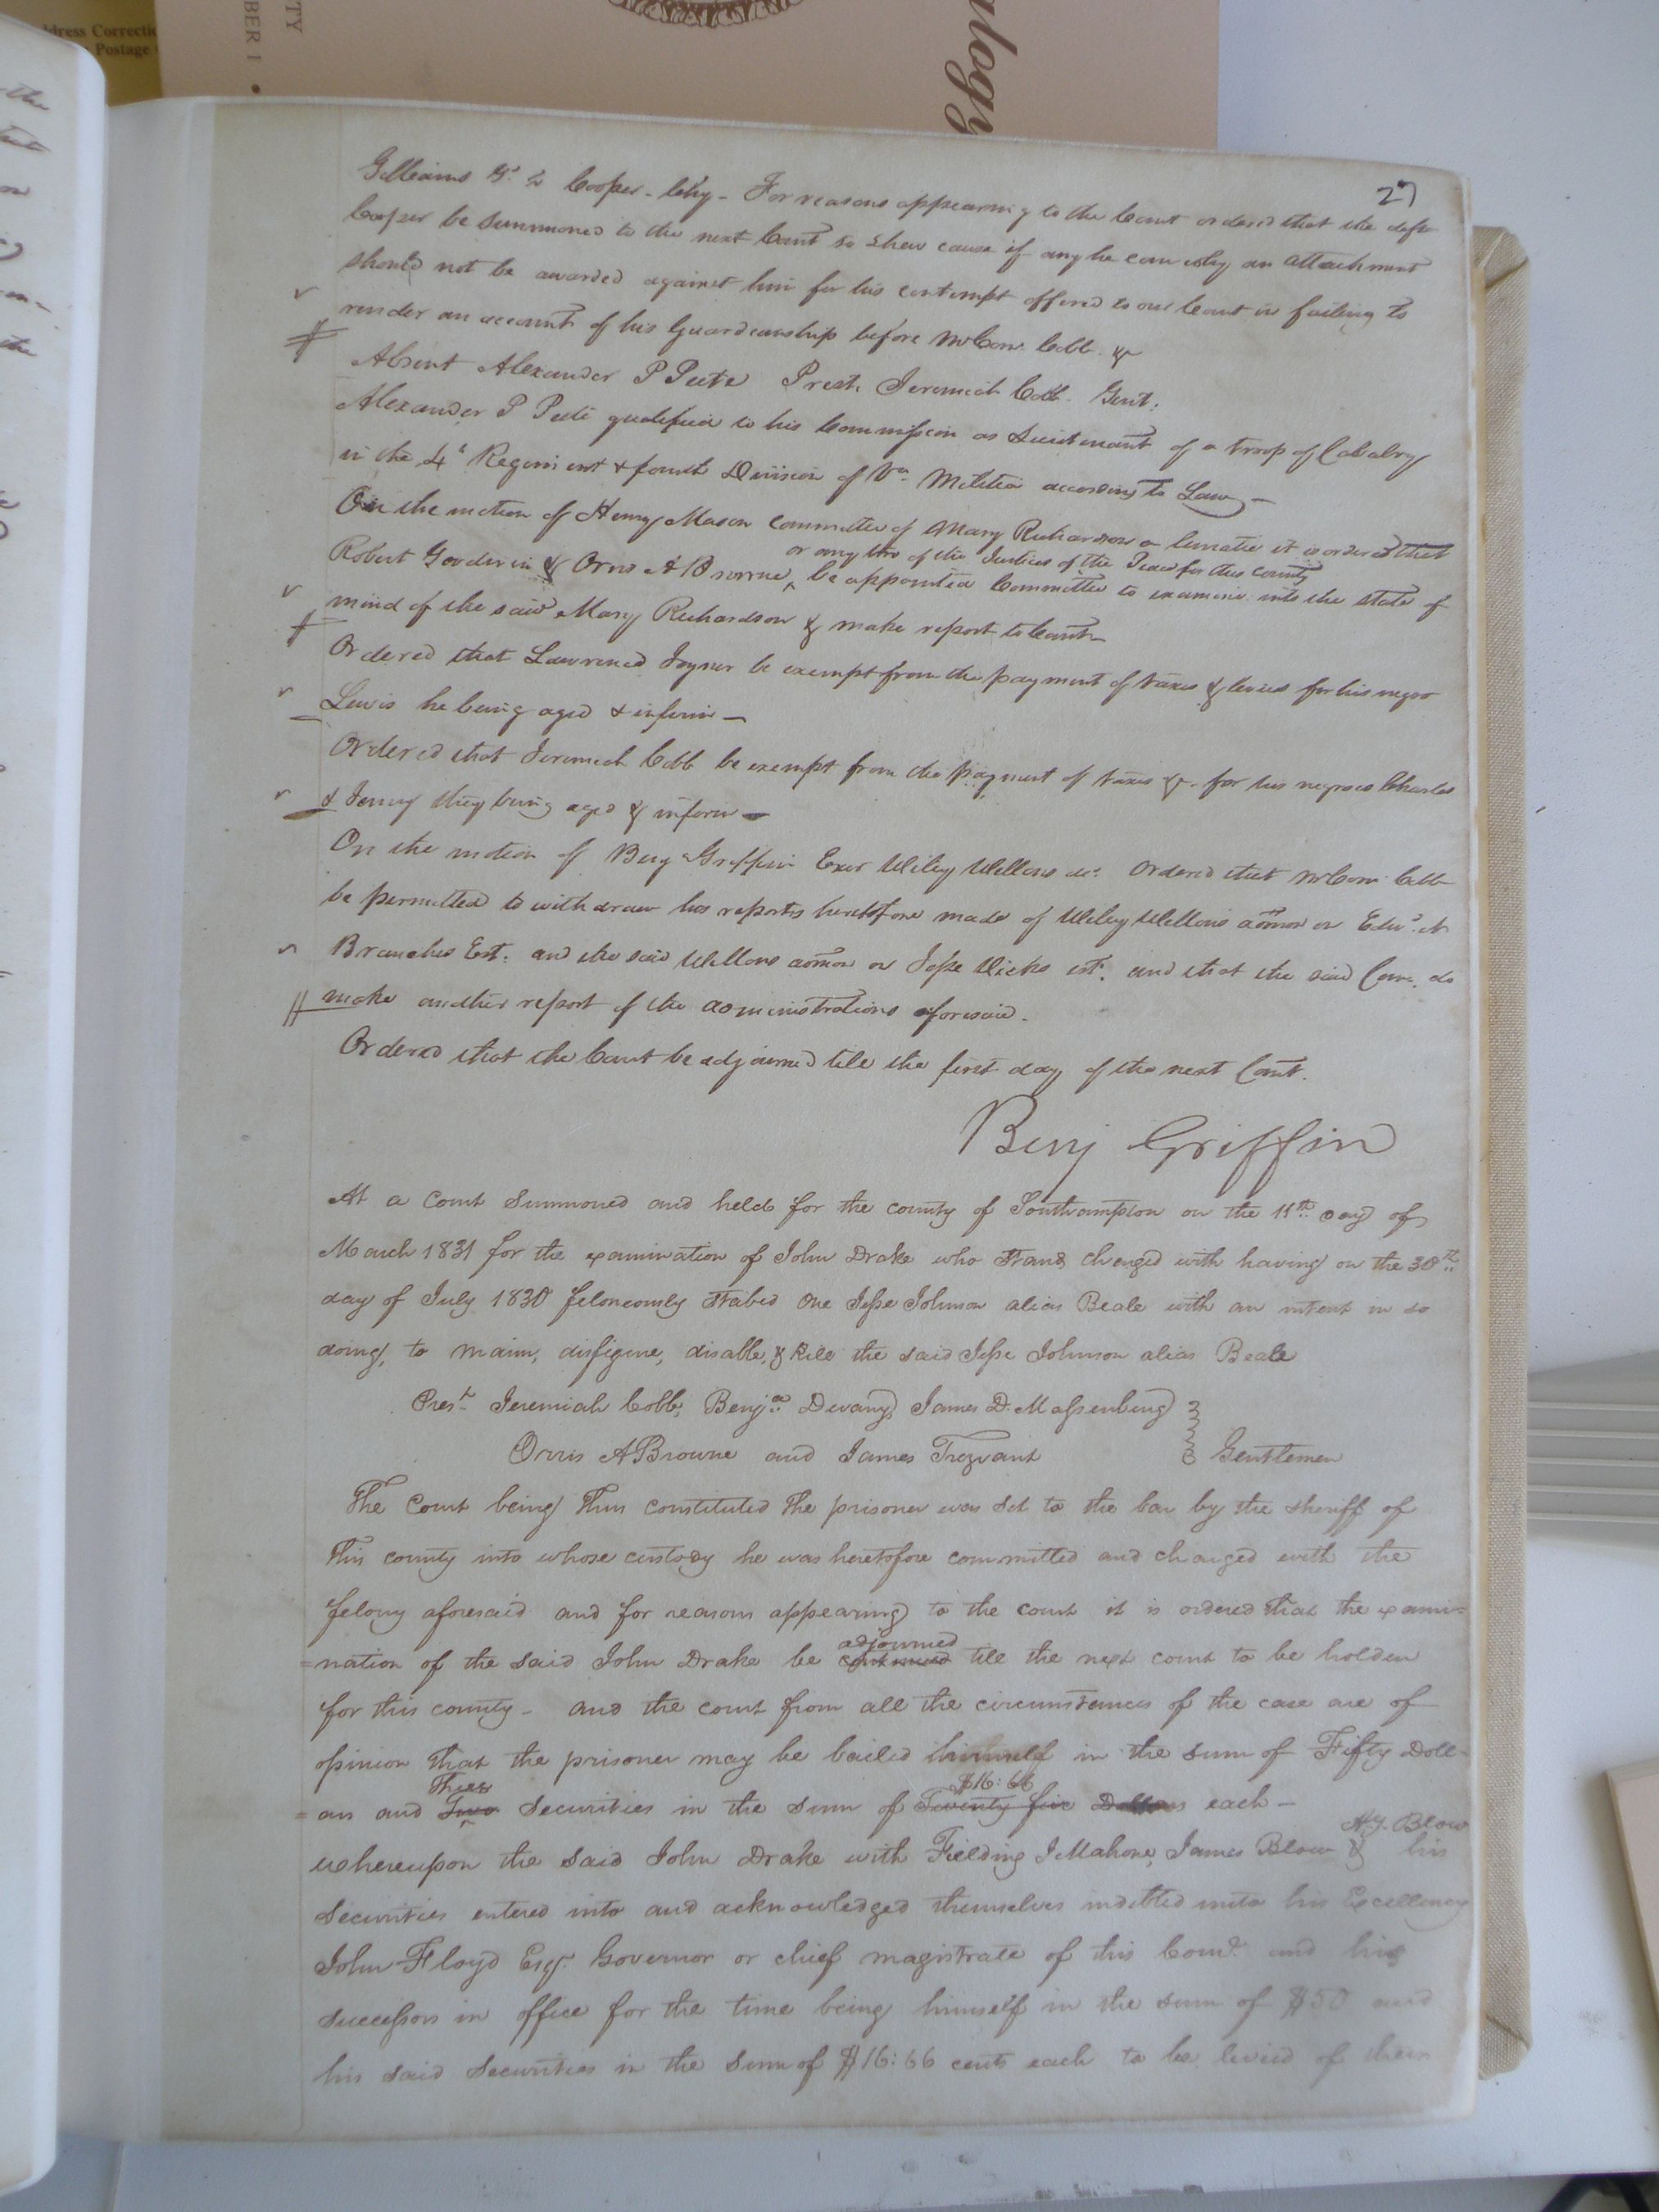 dress Correctio
Postage
TY
BER 1 •
logy
27
Gilliams Gd. vs Cooper - Chy - For reasons appearing to the Court ordered that the deft
Cooper be summoned to the next Court to shew cause if any he can why an attachment
should not be awarded against him for his contempt offered to our Court in failing to
render an account of his Guardianship before Mr Com. Cobb. &c
Absent Alexander P Peete Prest. Jeremiah Cobb. Gent:
Alexander P Peete qualified to his Commission as Lieutenant of a troop of Cavalry
in the 4th Regiment & fourth Division of Va. Militia according to Law -
On the motion of Henry Mason Committee of Mary Richardson a lunatic it is ordered that
or any two of the Justices of the Peace for this County
Robert Goodwin & Orris A Browne ^ be appointed Committee to examine into the state of
mind of the said Mary Richardson & make report to Court
Ordered that Lawrence Joyner be exempt from the payment of taxes & levies for his negro
Lewis he being aged & infirm -
Ordered that Jeremiah Cobb be exempt from the payment of taxes &c. for his negroes Charles
& Jenny they being aged & infirm -
On the motion of Benj Griffin Exor Wiley Wellons dec. Ordered that Mr Com. Cobb
be permitted to withdraw his reports heretofore made of Wiley Wellons admor on Edwd. N
Branches Est. and the said Wellons admor on Jesse Vicks est. and that the said Com. do
make another report of the administrations aforesaid.
Ordered that the Court be adjourned till the first day of the next Court.
Benj Griffin
At a court summoned and held for the county of Southampton on the 11th day of
March 1831 for the examination of John Drake who stands charged with having on the 30th
day of July 1830 feloneously stabed one Jesse Johnson alias Beale with an intent in so
doing, to maim, disfigure, disable, & kill the said Jesse Johnson alias Beale
Prest Jeremiah Cobb, Benja Devany, James D. Massenburg
Orris A Browne and James Trezvant Gentlemen
The Court being thus constituted the prisoner was set to the bar by the sheriff of
this county into whose custody he was heretofore committed and charged with the
felony aforesaid and for reasons appearing to the court it is ordered that the exami=
adjourned
=nation of the said John Drake be continued till the next court to be holden
for this county - and the court from all the circumstances of the case are of
opinion that the prisoner may be bailed himself in the sum of Fifty Doll=
Three $16:66
=ars and Two securities in the sum of Twenty five Dollars each -
A.J. Blow
whereupon the said John Drake with Fielding J Mahone, James Blow & his
securities entered into and acknowledged themselves indebted unto his Excellency
John Floyd Esqr. Governor or chief magistrate of this Comth. and his
successors in office for the time being himself in the sum of $50 and
his said securities in the sum of $16:66 cents each to be levied of their